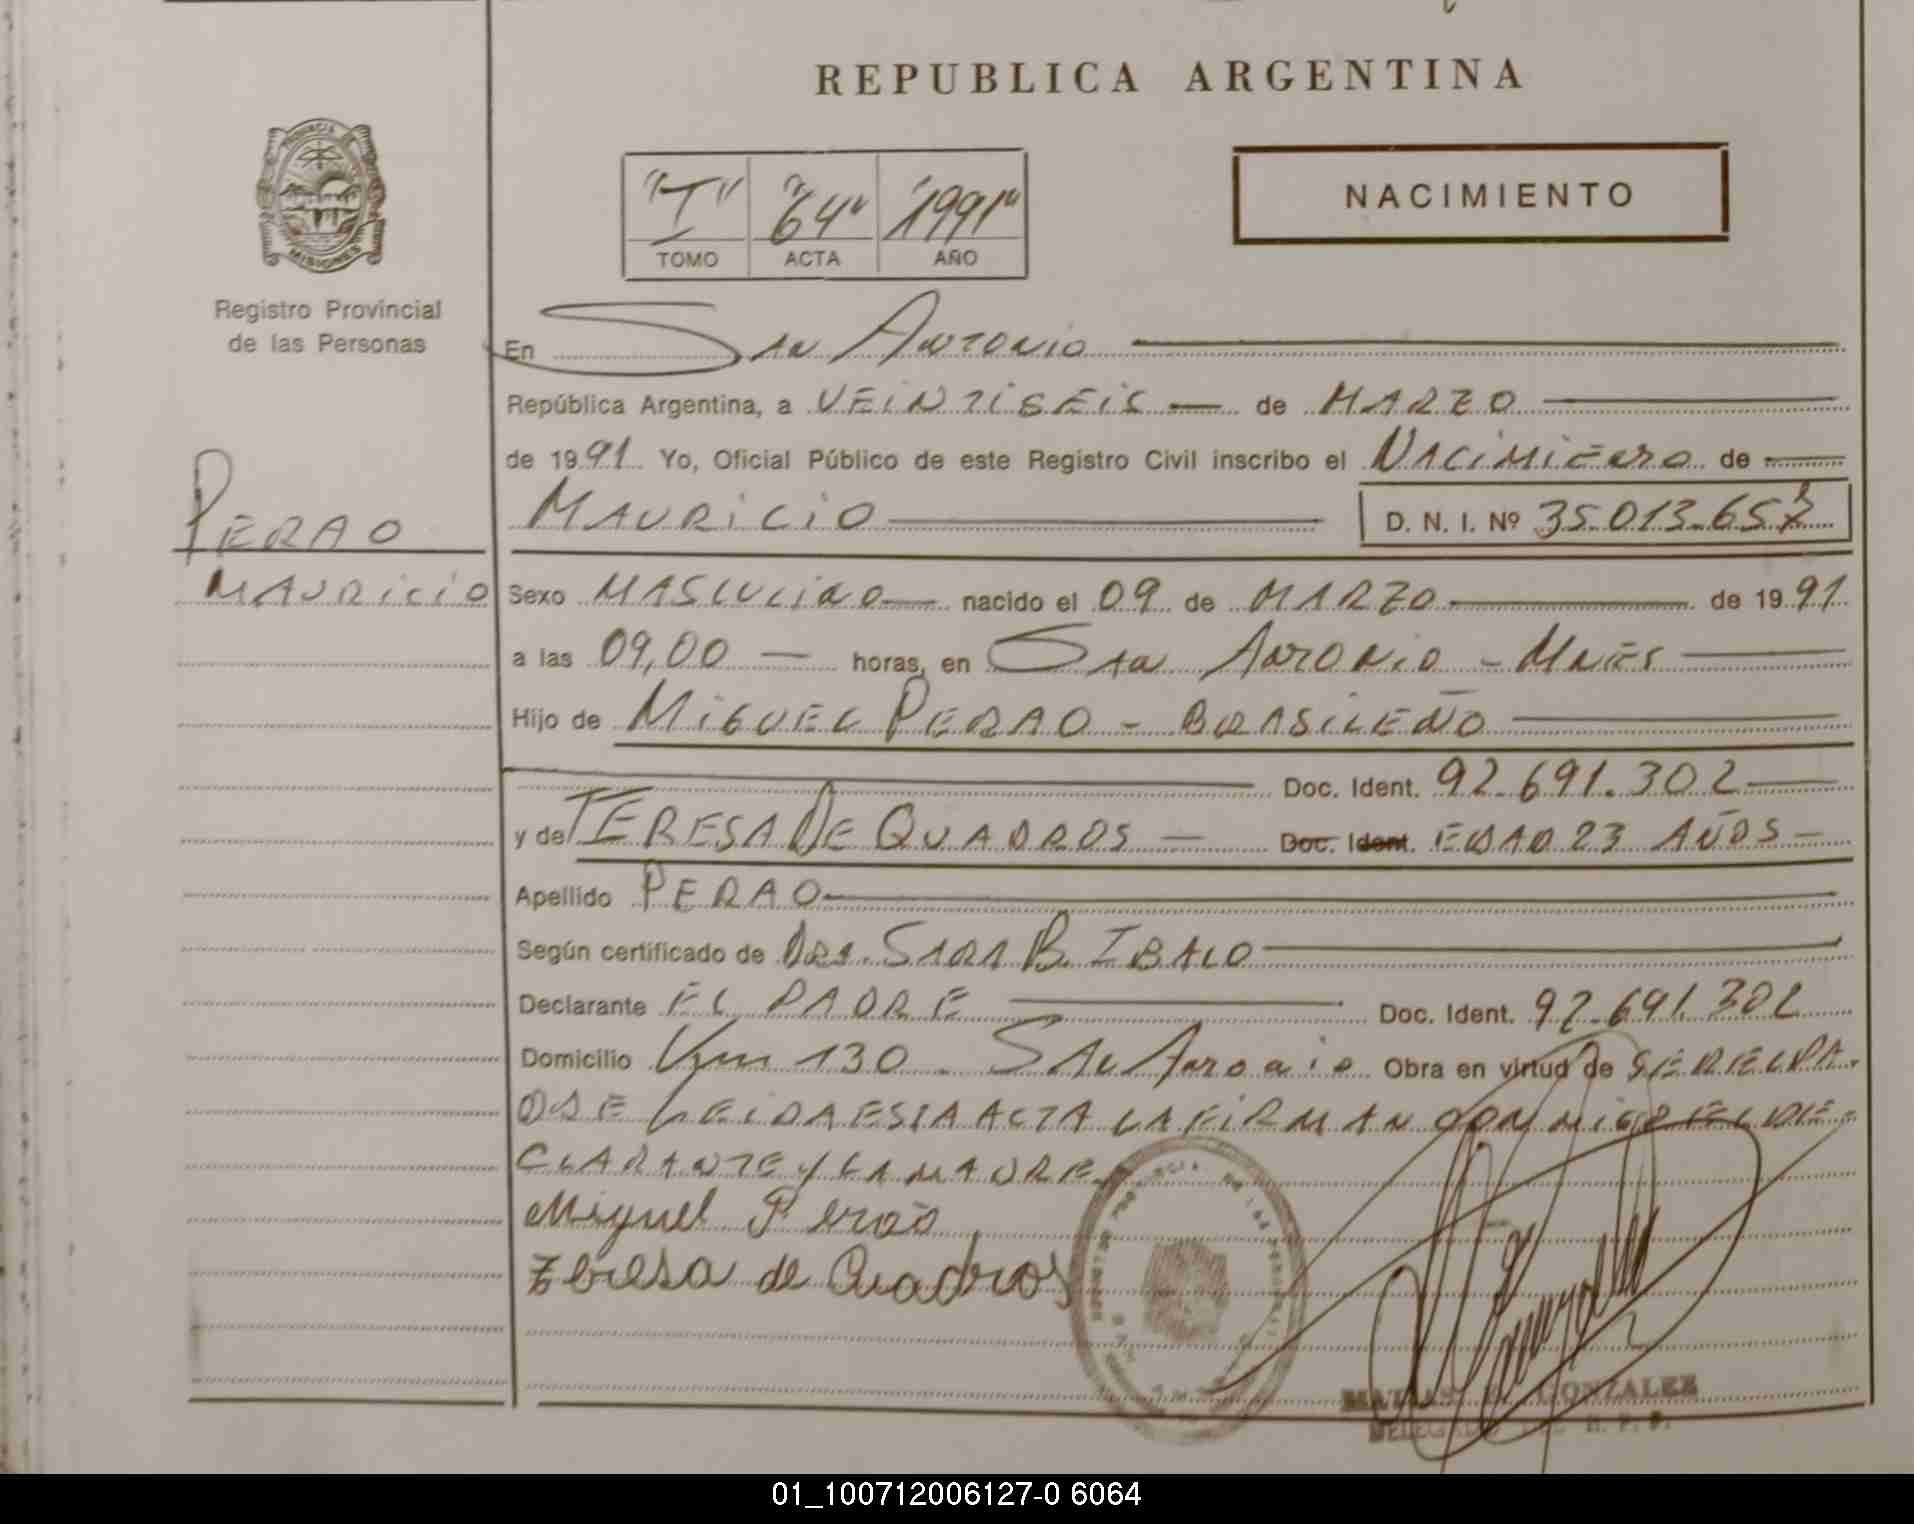 REPUBLICA ARGENTINA
PROVINCIA
MISIONES
Registro Provincial
de las Personas
"I" "64" "1991"
TOMO ACTA AÑO
NACIMIENTO
En San Antonio
República Argentina, a VEINTISEIS de MARZO
de 1991 Yo, Oficial Público de este Registro Civil inscribo el NACIMIENTO de
MAURICIO D. N. I. Nº 35.013.657
PERAO
MAURICIO
Sexo MASCULINO nacido el 09 de MARZO de 1991
a las 09,00 horas, en San Antonio - Mnes
Hijo de MIGUEL PERAO - BRASILEÑO
Doc. Ident. 92.691.302
y de TERESA DE QUADROS Doc. Ident. EDAD 23 AÑOS
Apellido PERAO
Según certificado de Dra. SARA B. IBALO
Declarante EL PADRE Doc. Ident. 92.691.302
Domicilio Km 130 - San Antonio Obra en virtud de SER EL PA-
DRE LEIDA ESTA ACTA LA FIRMAN CONMIGO EL DE-
CLARANTE Y LA MADRE.
Miguel Perão
Teresa de Quadros
MATIAS GONZALEZ
DELEGADO DEL R. P. P.
01_100712006127-0 6064